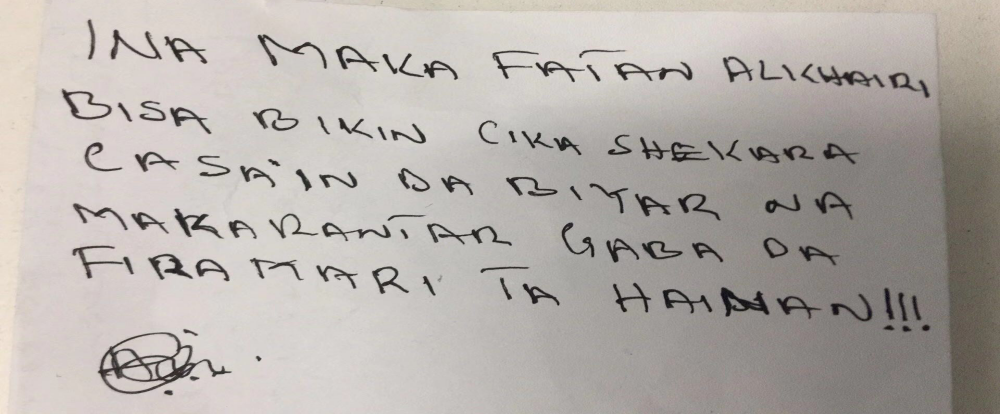 INA MAKA FATAN ALKHAIRI
BISA BIKIN CIKA SHEKARA
CASA'IN DA BIYAR NA
MAKARANTAR GABA DA
FIRAMARI TA HAINAN!!!